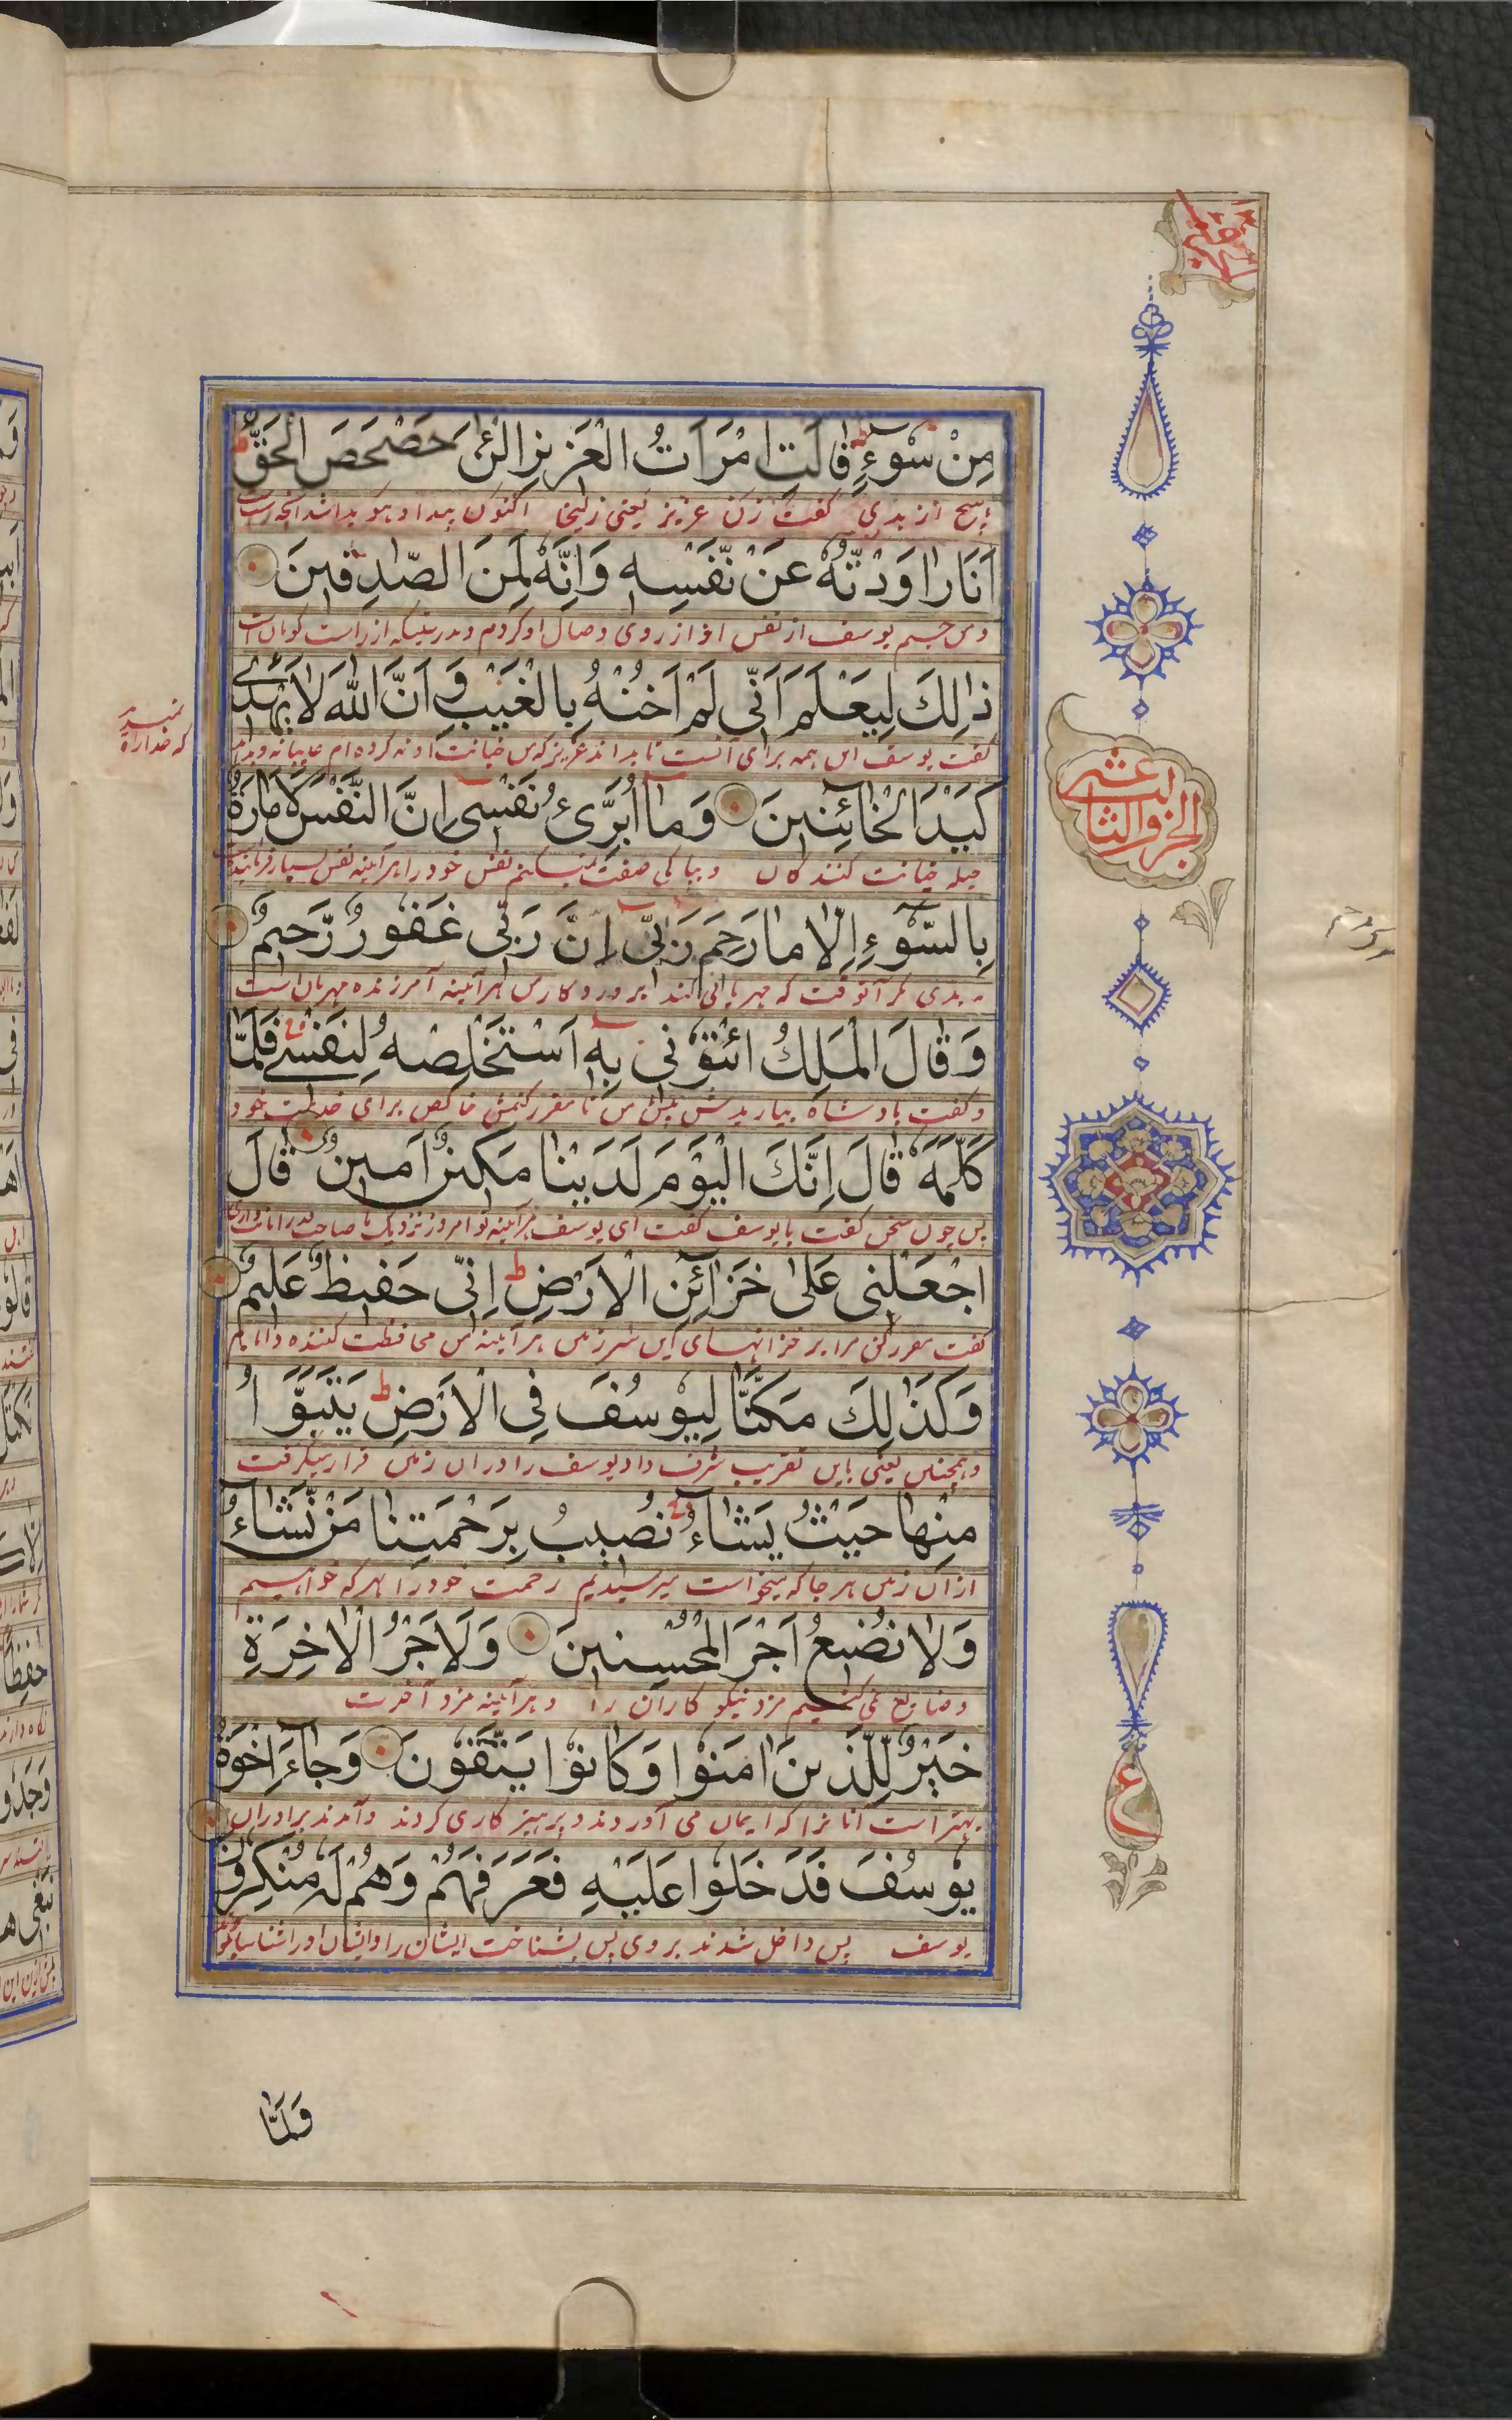 مِنْ سُوْءٍ قَالَتِ امْرَاَتُ الْعَزِيْزِ الْئٰنَ حَصْحَصَ الْحَقُّ
هیچ از بدی گفت زن عزیز یعنی زلیخا اکنون پیدا و هویدا شد آنچه راست
اَنَا رَاوَدْتُّهٗ عَنْ نَّفْسِهٖ وَاِنَّهٗ لَمِنَ الصّٰدِقِيْنَ
یوسف از نفس او از روی وصال او کردم و بدرستیکه از راست گویان است
ذٰلِكَ لِيَعْلَمَ اَنِّيْ لَمْ اَخُنْهُ بِالْغَيْبِ وَاَنَّ اللّٰهَ لَا يَهْدِيْ
گفت یوسف این همه برای آنست تا بداند عزیز که من خیانت او نه کرده ام غایبانه و بداند
که خدا راه
نمیدهد
كَيْدَ الْخَائِنِيْنَ وَمَا اُبَرِّئُ نَفْسِيْ اِنَّ النَّفْسَ لَاَمَّارَةٌ
حیله خیانت کنندگان و بپاکی صفت نمیکنم نفس خود را هر آینه نفس بسیار فرماینده است
بِالسُّوْءِ اِلَّا مَا رَحِمَ رَبِّيْ اِنَّ رَبِّيْ غَفُوْرٌ رَّحِيْمٌ
به بدی مگر آنوقت که مهربانی کند پروردگار من هر آینه آمرزنده مهربان است
وَقَالَ الْمَلِكُ ائْتُوْنِيْ بِهٖ اَسْتَخْلِصْهُ لِنَفْسِيْ فَلَمَّا
و گفت بادشاه بیاریدش پیش من تا مقرر کنمش خالص برای خدمت خود
كَلَّمَهٗ قَالَ اِنَّكَ الْيَوْمَ لَدَيْنَا مَكِيْنٌ اَمِيْنٌ قَالَ
پس چون سخن گفت با یوسف گفت ای یوسف هر آینه تو امروز نزدیک ما صاحب قدر امانت داری
اجْعَلْنِيْ عَلٰى خَزَآئِنِ الْاَرْضِ اِنِّيْ حَفِيْظٌ عَلِيْمٌ
گفت مقرر کن مرا بر خزانهای این سرزمین هر آینه من محافظت کننده دانایم
وَكَذٰلِكَ مَكَّنَّا لِيُوْسُفَ فِي الْاَرْضِ يَتَبَوَّاُ
و همچنین یعنی باین تقریب شرف دادیم یوسف را در آن زمین قرار میگرفت
مِنْهَا حَيْثُ يَشَاءُ نُصِيْبُ بِرَحْمَتِنَا مَنْ نَّشَاءُ
از آن زمین هر جا که میخواست میرسانیم رحمت خود را بهر که خواهیم
وَلَا نُضِيْعُ اَجْرَ الْمُحْسِنِيْنَ وَلَاَجْرُ الْاٰخِرَةِ
و ضایع نمی کنیم مزد نیکو کاران را و هر آینه مزد آخرت
خَيْرٌ لِّلَّذِيْنَ اٰمَنُوْا وَكَانُوْا يَتَّقُوْنَ وَجَآءَ اِخْوَةُ
بهتر است آنانرا که ایمان می آوردند و پرهیزگاری کردند و آمدند برادران
يُوْسُفَ فَدَخَلُوْا عَلَيْهِ فَعَرَفَهُمْ وَهُمْ لَهٗ مُنْكِرُوْنَ
یوسف پس داخل شدند بر وی پس بشناخت ایشان را و ایشان او را
وَلَمَّا
الجزو الثالث عشر
ع